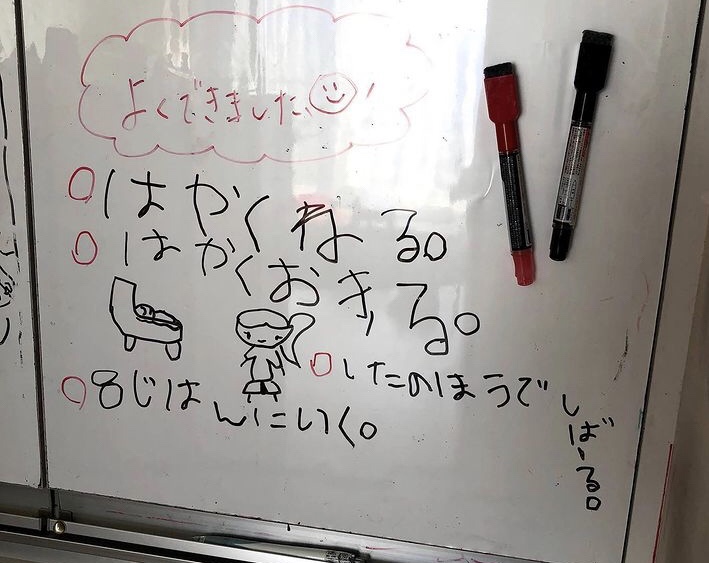 よくできました!
○はやくねる。
○はやくおきる。
○したのほうでしばる。
○8じはんにいく。